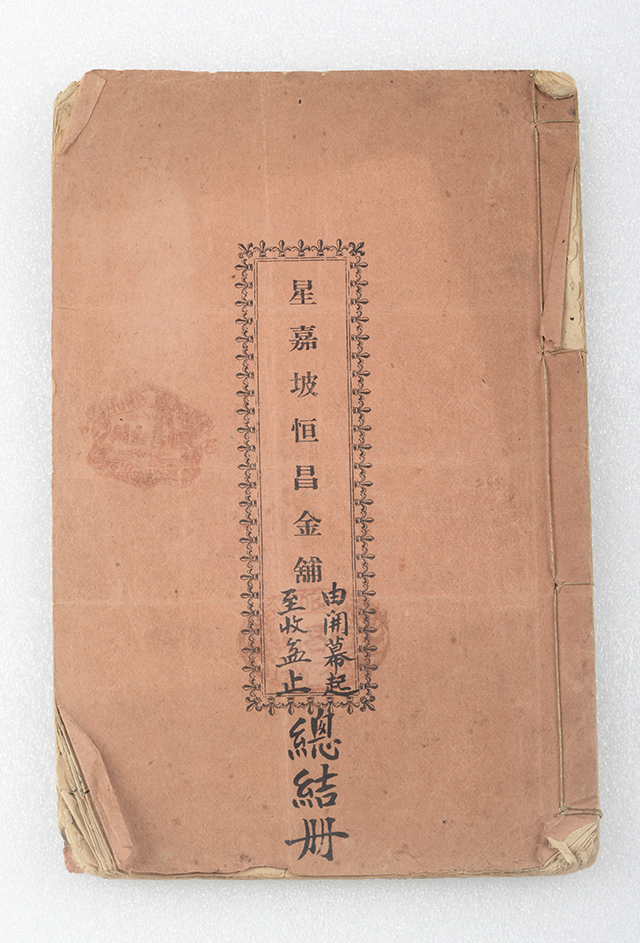 星嘉坡恒昌金舖
由開幕起
至收盆止
總結册